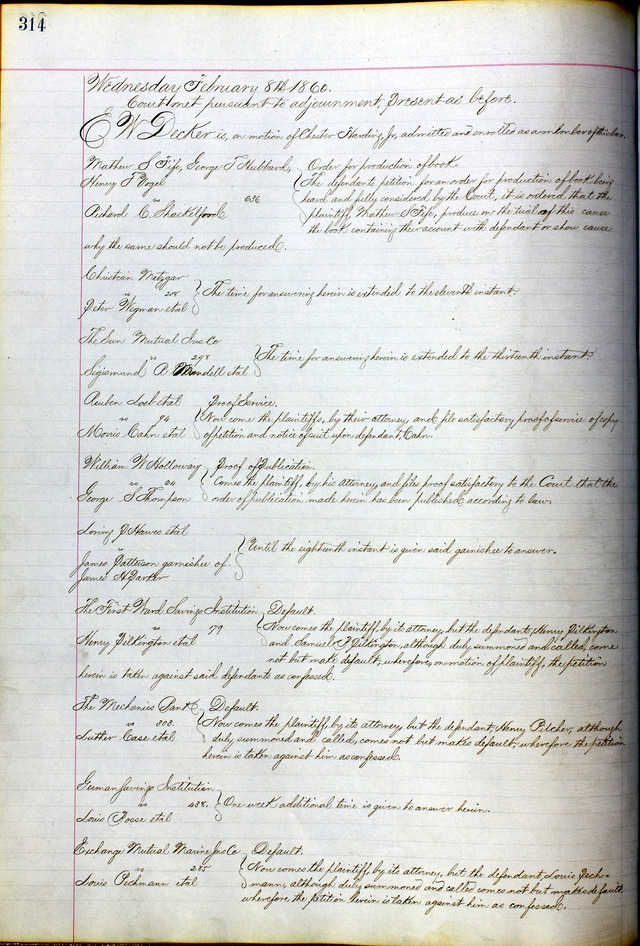 314
Wednesday February 8th 1860.
Court met pursuant to adjournment, present as before.
E W Decker is, on motion of Chester Harding, Jr, admitted and enrolled as a member of this bar.
Mathew S Fife, George T Hubbard, Order for production of book
Henry T Vogel The defendants petition for an order for production of book being
vs 636 heard and fully considered by the Court, it is ordered that the
Richard C Shackelford plaintiff, Mathew S Fife, produce on the trial of this cause
the book containing their account with defendant or show cause
why the same should not be produced.
Christian Metzgar
vs 218 The time for answering herein is extended to the eleventh instant.
Peter Wegman et al
The Sun Mutual Ins Co
vs 298 The time for answering herein is extended to the thirteenth instant.
Sigismund P Mandell et al
Reuben Loeb et al Proof Service.
vs 94 Now come the plaintiffs, by their attorney, and file satisfactory proof of service of copy
Moris Cahn et al of petition and notice of suit upon defendant, Cahn.
William W Holloway Proof of Publication.
vs 84 Comes the plaintiff, by his attorney, and files proof satisfactory to the Court that the
George S Thompson order of publication made herein has been published according to law.
Loring P Hawes et al
vs Until the eighteenth instant is given said garnishee to answer.
James Patterson garnishee of
James H Parker
The First Ward Savings Institution Default.
vs 179 Now comes the plaintiff by its attorney, but the defendants, Henry Pilkington
Henry Pilkington et al and Samuel J Pilkington, although duly summoned and called, come
not but make default, wherefore, on motion of plaintiff, the petition
herein is taken against said defendants as confessed.
The Mechanics Bank Default.
vs 303. Now comes the plaintiff, by its attorney, but the defendant, Henry Pilcher, although
Luther Case et al duly summoned and called, comes not but makes default, wherefore the petition
herein is taken against him as confessed.
German Savings Institution
vs 438. One week additional time is given to answer herein.
Louis Posse et al
Exchange Mutual Marine Ins Co Default.
vs 285 Now comes the plaintiff, by its attorney, but the defendant, Louis Pech-
Louis Pechmann et al mann, although duly summoned and called comes not but makes default
wherefore the petition herein is taken against him as confessed.